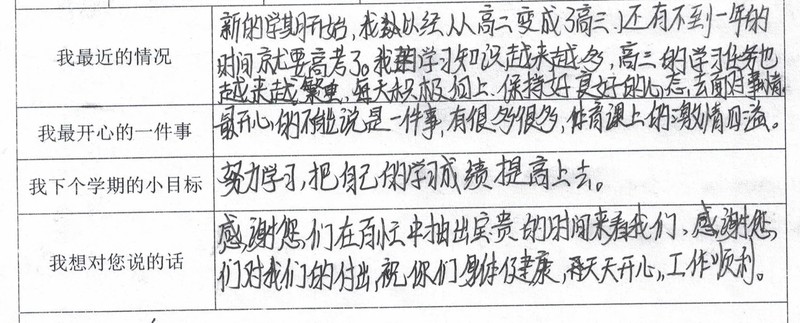 我最近的情况
新的学期开始,我以经从高二变成了高三,还有不到一年的
时间就要高考了。我学习知识越来越多,高三的学习任务也
越来越繁重,每天积极向上,保持好良好的心态,去面对事情
我最开心的一件事
最开心的不能说是一件事,有很多很多,体育课上的激情四溢。
我下个学期的小目标
努力学习,把自己的学习成绩提高上去。
我想对您说的话
感谢您们在百忙中抽出宝贵的时间来看我们、感谢您
们对我们的付出,祝你们身体健康,天天开心,工作顺利。